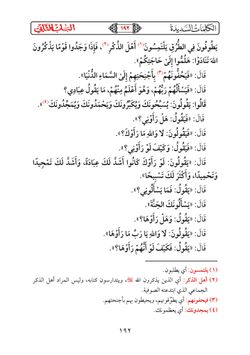 الكلمات السديدة
١٩٢
يَطُوفُونَ فِي الطُّرُقِ يَلْتَمِسُونَ(١) أَهْلَ الذِّكْرِ(٢)، فَإِذَا وَجَدُوا قَوْمًا يَذْكُرُونَ
اللهَ تَنَادَوْا: هَلُمُّوا إِلَىٰ حَاجَتِكُمْ».
قَالَ: «فَيَحُفُّونَهُمْ(٣) بِأَجْنِحَتِهِمْ إِلَىٰ السَّمَاءِ الدُّنْيَا».
قَالَ: «فَيَسْأَلُهُمْ رَبُّهُمْ، وَهُوَ أَعْلَمُ مِنْهُمْ، مَا يَقُولُ عِبَادِي؟
قَالُوا: يَقُولُونَ: يُسَبِّحُونَكَ وَيُكَبِّرُونَكَ وَيَحْمَدُونَكَ وَيُمَجِّدُونَكَ(٤)».
قَالَ: «فَيَقُولُ: هَلْ رَأَوْنِي؟».
قَالَ: «فَيَقُولُونَ: لَا وَاللهِ مَا رَأَوْكَ؟».
قَالَ: «فَيَقُولُ: وَكَيْفَ لَوْ رَأَوْنِي؟».
قَالَ: «يَقُولُونَ: لَوْ رَأَوْكَ كَانُوا أَشَدَّ لَكَ عِبَادَةً، وَأَشَدَّ لَكَ تَمْجِيدًا
وَتَحْمِيدًا، وَأَكْثَرَ لَكَ تَسْبِيحًا».
قَالَ: «يَقُولُ: فَمَا يَسْأَلُونِي؟».
قَالَ: «يَسْأَلُونَكَ الجَنَّةَ».
قَالَ: «يَقُولُ: وَهَلْ رَأَوْهَا؟».
قَالَ: «يَقُولُونَ: لَا وَاللهِ يَا رَبِّ مَا رَأَوْهَا».
قَالَ: «يَقُولُ: فَكَيْفَ لَوْ أَنَّهُمْ رَأَوْهَا؟».
(١) يلتمسون: أي يطلبون.
(٢) أهل الذكر: أي الذين يذكرون الله، ويتدارسون كتابه، وليس المراد أهل الذكر
الجماعي الذي ابتدعته الصوفية.
(٣) فيحفونهم: أي يطوفونهم، ويحيطون بهم بأجنحتهم.
(٤) يمجدونك: أي يعظمونك.
١٩٢